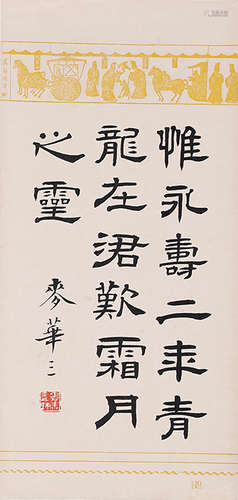 惟永壽二年青
龍在涒歎霜月
之靈
麥華三